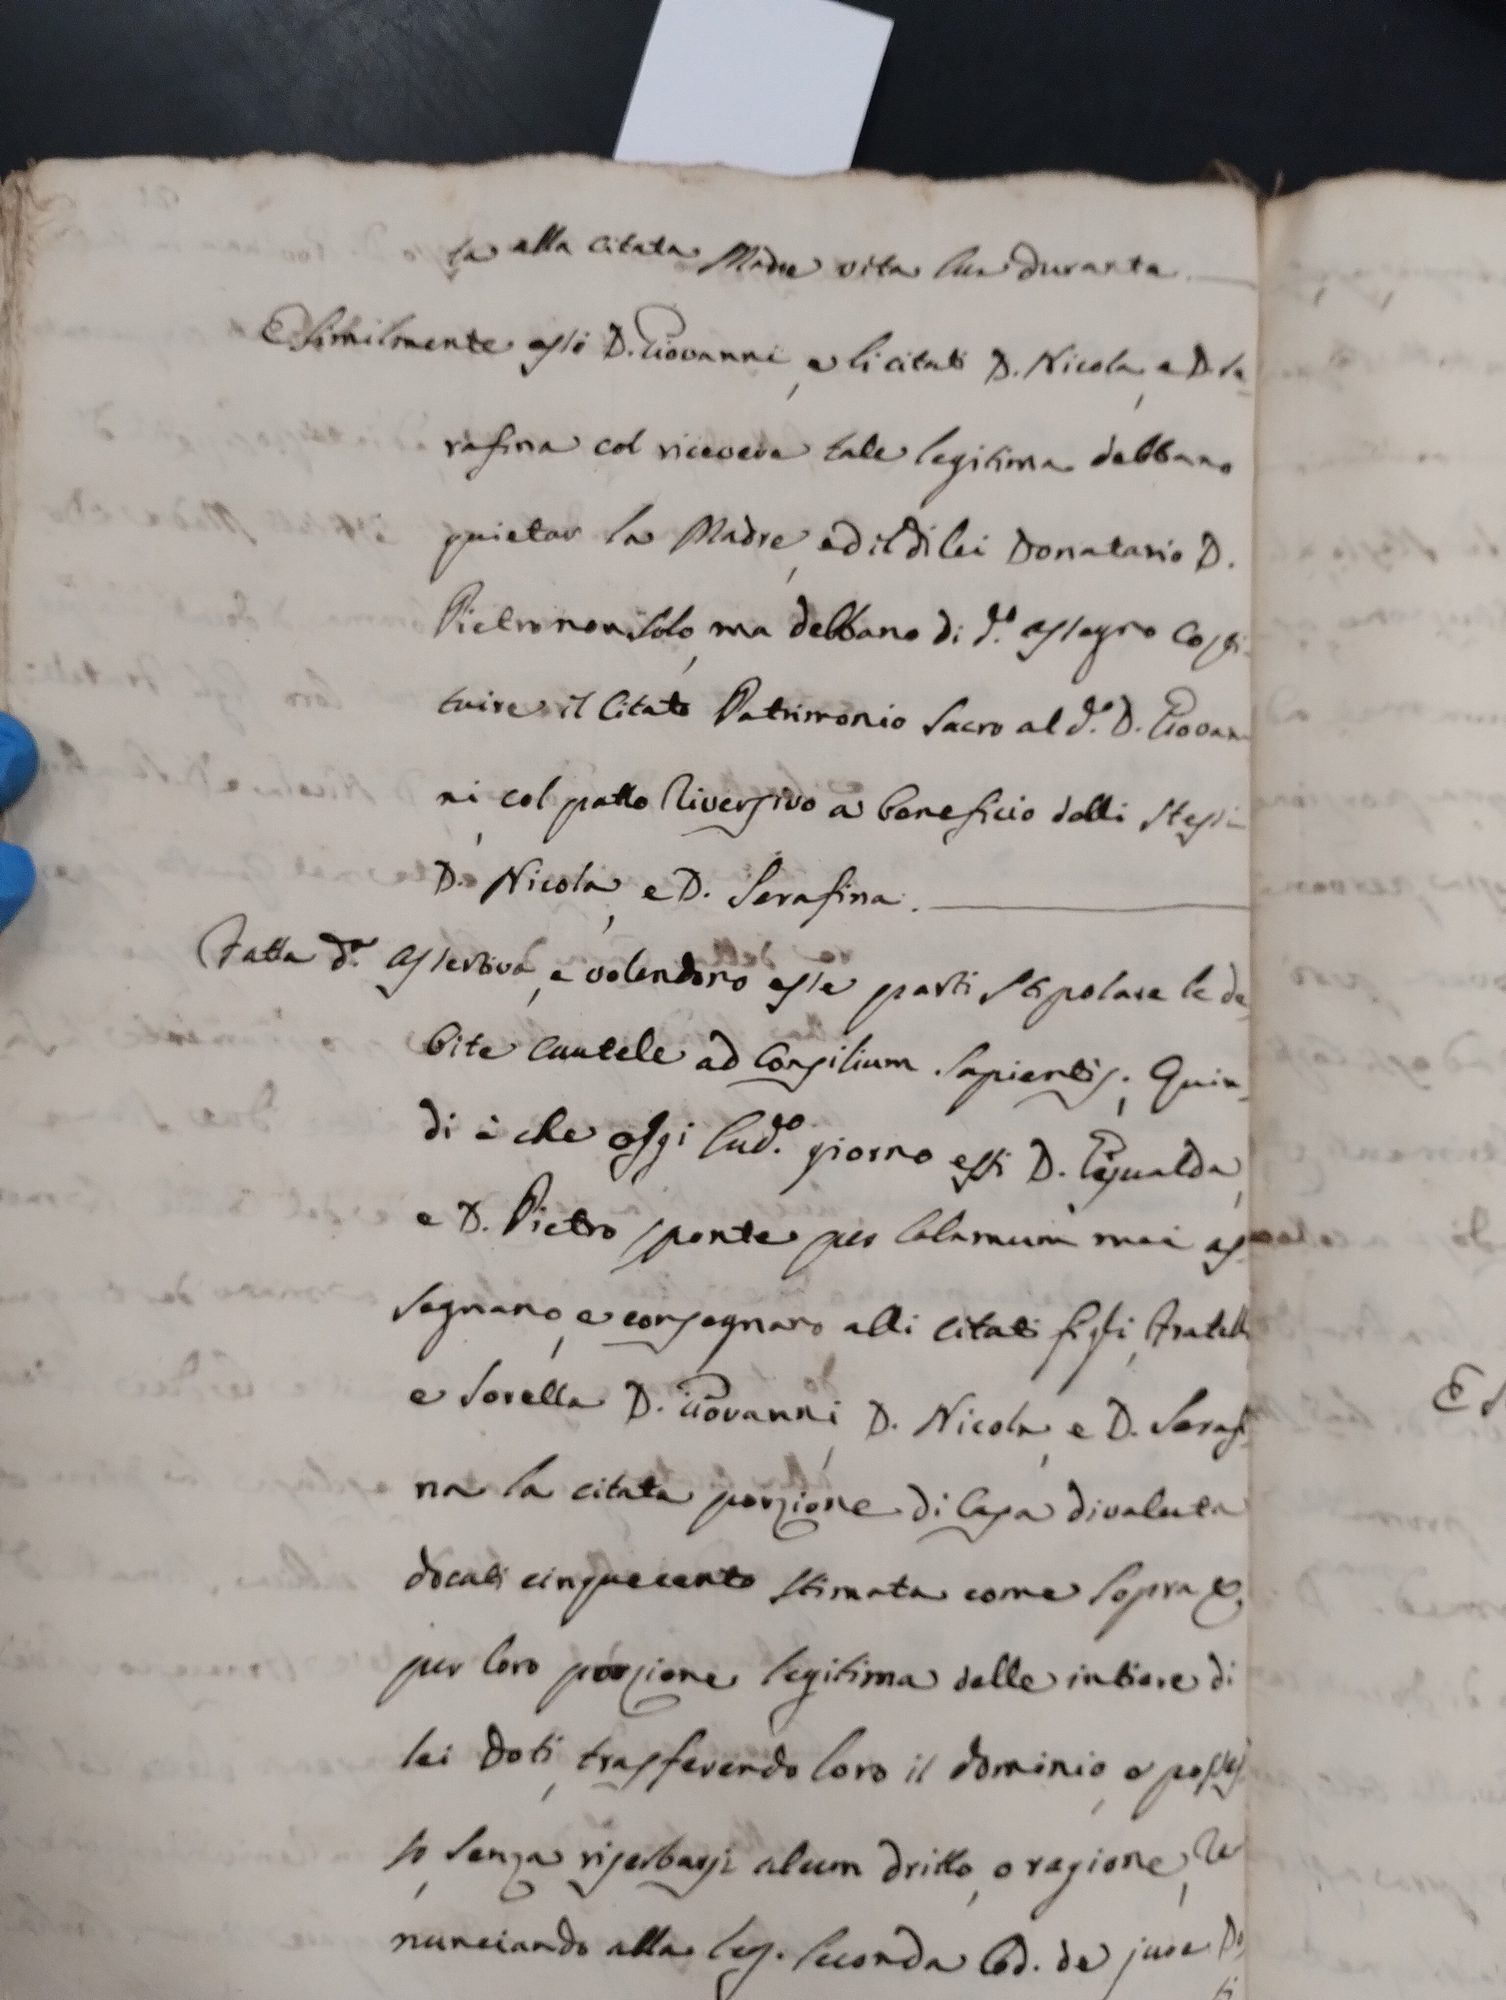 ta alla citata Madre vita sua durante.
E similmente essi D. Giovanni, e li citati D. Nicola, e D. Se
rafina col ricevere tale legitima debbano
quietar la Madre, ed il di lei Donatario D.
Pietro non solo, ma debbano di d.o assegno costi
tuire il citato Patrimonio Sacro al d.o D. Giovan
ni, col patto riversivo a beneficio delli stessi
D. Nicola, e D. Serafina.
Fatta d.a assertiva, e volendono esse parti stipolare le de
bite cautele ad consilium sapientis; Quin
di è che oggi sud.o giorno essi D.
e D. Pietro sponte per calamum mei as
segnano, e consegnano alli citati figli, fratelli
e sorella D. Giovanni, D. Nicola, e D. Serafi
na la citata porzione di casa di valuta
docati cinquecento stimata come sopra &
per loro porzione legitima delle intiere di
lei doti, trasferendo loro il dominio, e posses
so, senza riserbarsi alcun dritto, o ragione, re
nunciando alla leg. seconda Cod. de jure Do
ti
E s